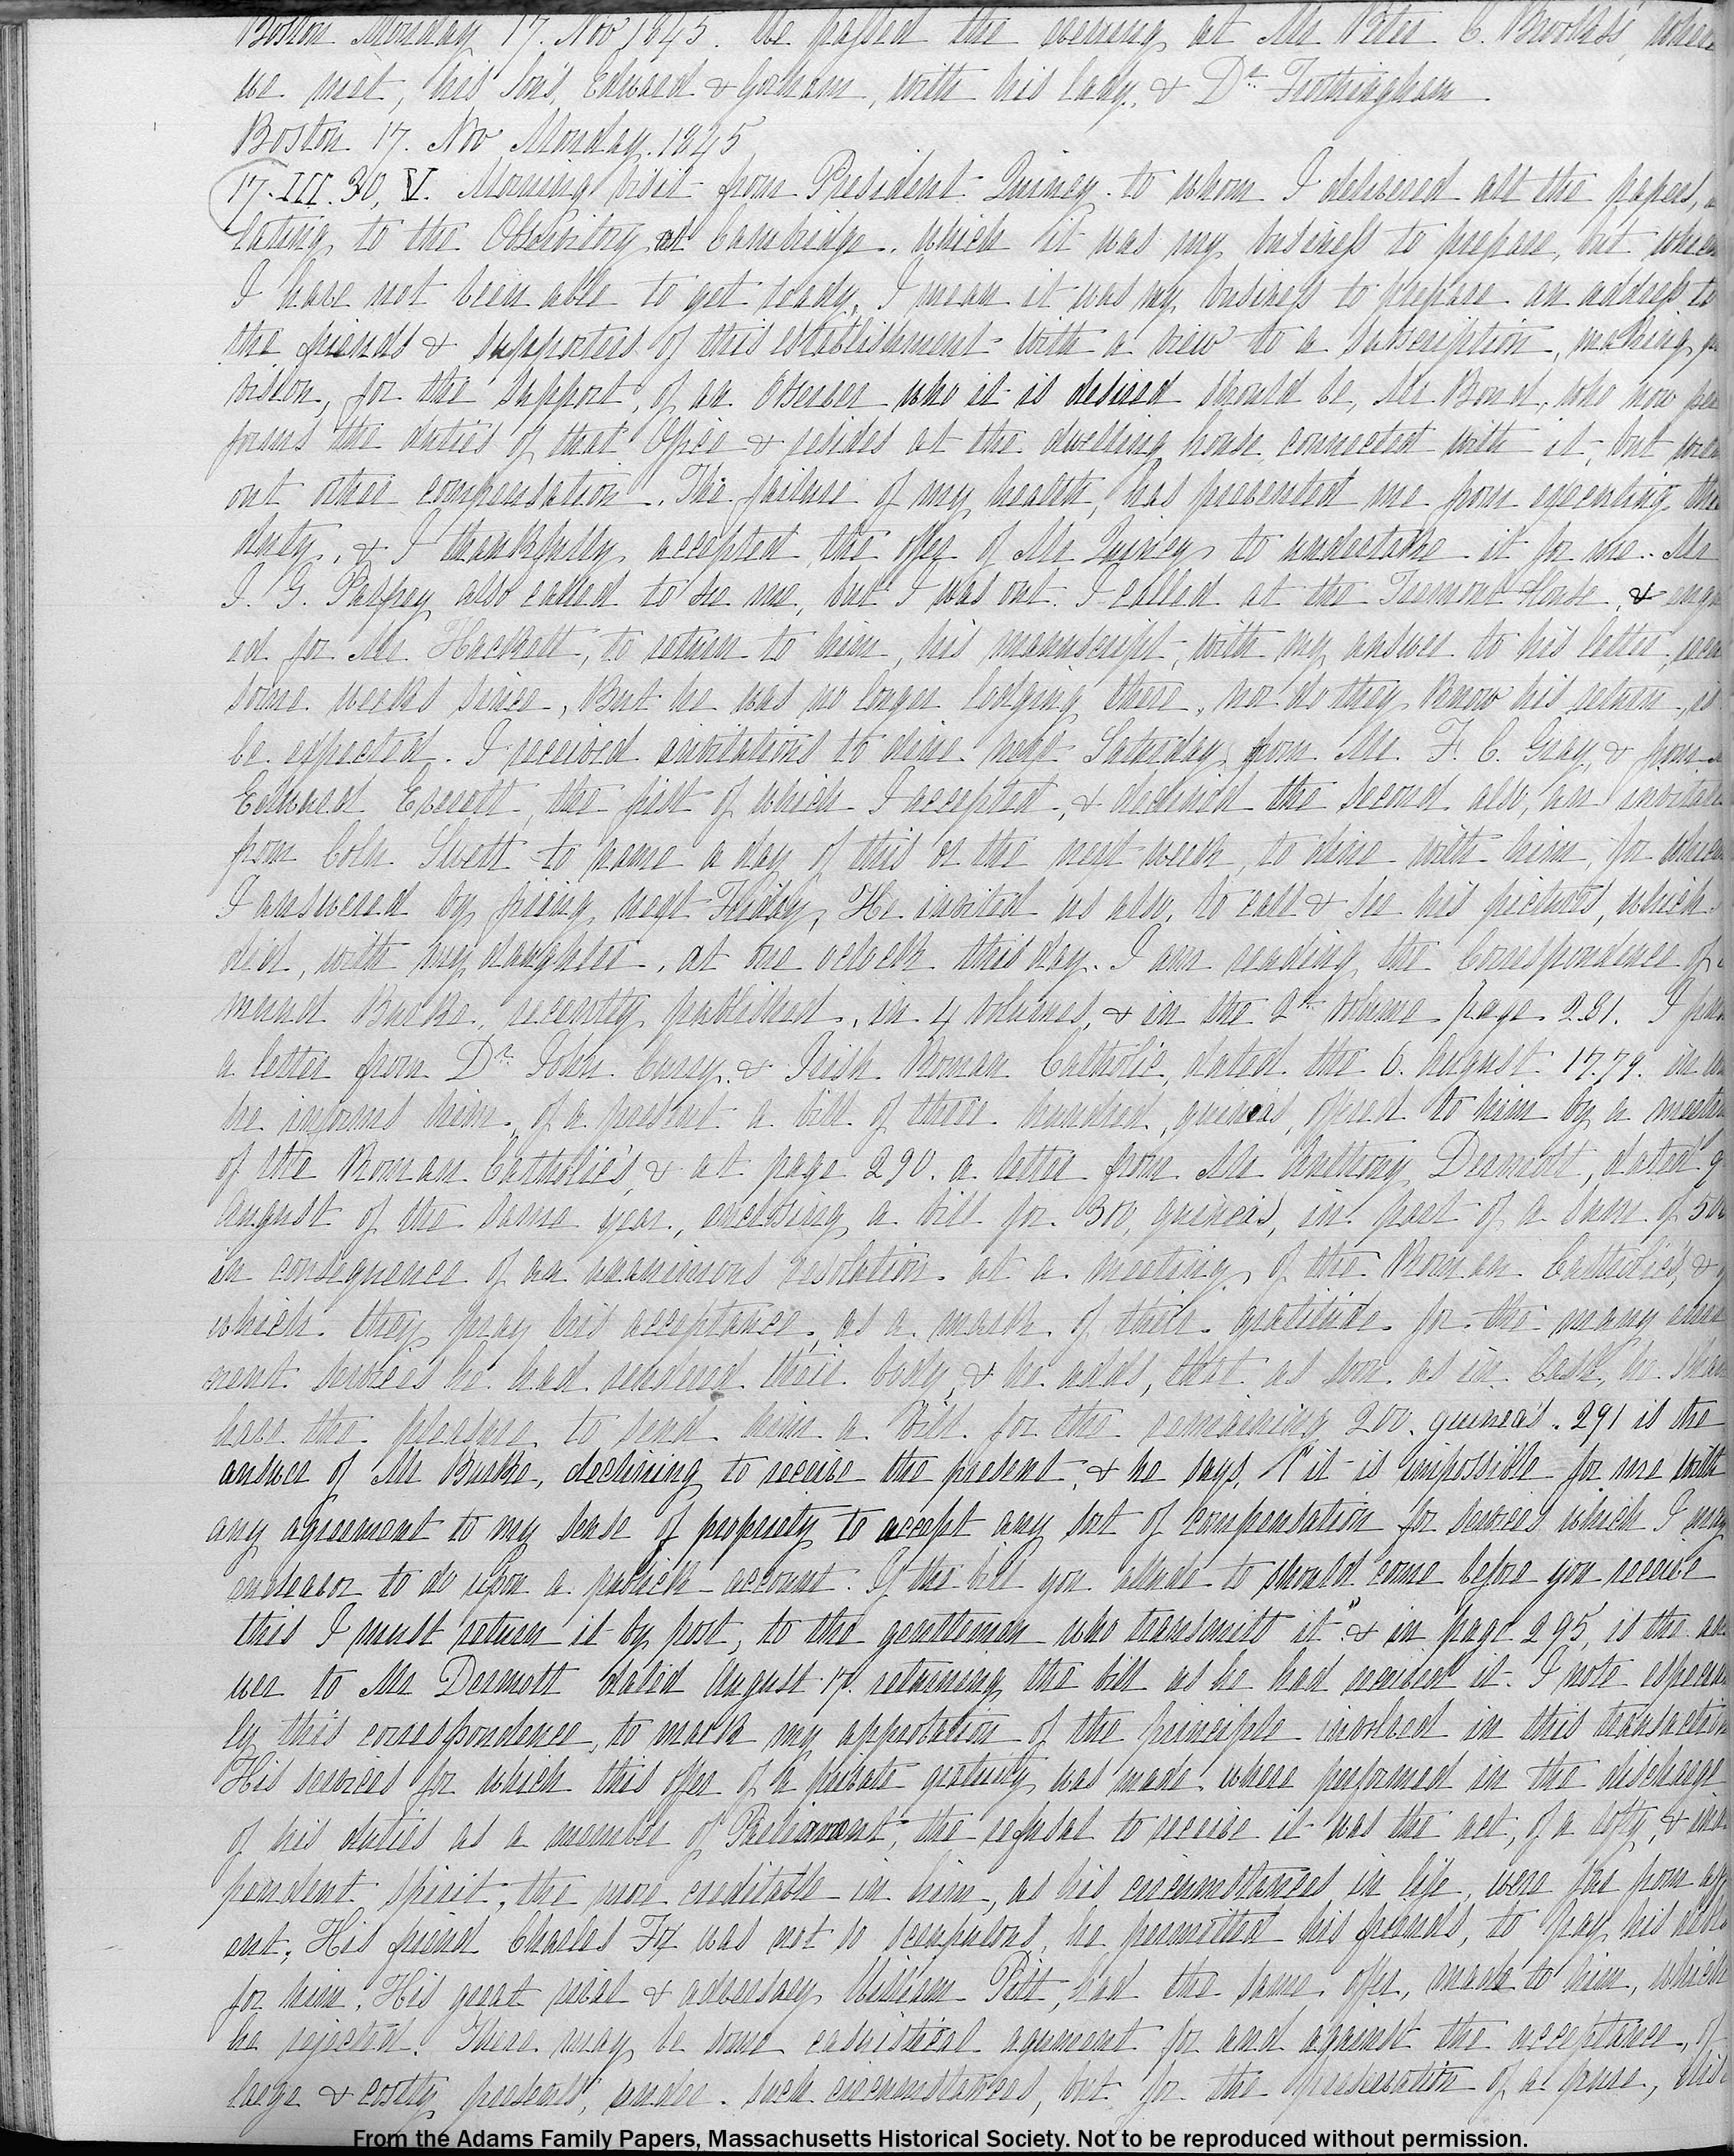 Boston Monday 17. Nov 1845. We passed the evening at Mr Peter C. Brooks's, where
we met, his Son's, Edward & Gorham, with his lady, & Dr. Frothingham.
Boston 17. Nov Monday. 1845
17. III. 30, V. Morning visit from President Quincy to whom I delivered all the papers,
lating to the Observitory at Cambridge, which it was my business to prepare, but which
I have not been able to get ready, I mean it was my business to prepare an address to
the friends & supporters of this establishment with a view to a subscription, making
vision, for the support, of an Observer who it is desired should be, Mr Bond, who now per
forms the duties of that Office & resides at the dwelling house connected with it, but with
out other compensation. The failure of my health, has prevented me from executing this
duty, & I thankfully accepted the offer of Mr Quincy to undertake it for me. Mr
J. G. Palfrey also called to see me, but I was out. I called at the Tremont House, & enqu
ed for Mr. Hackett, to return to him, his manuscript, with my answer to his letter,
some weeks since, But he was no longer lodging there, nor do they know his return, is
be expected. I received invitations to dine next Saturday from Mr. F. C. Gray, & from
Edward Everett, the first of which I accepted, & declined the second also, an invitati
from Coln. Swett to name a day of this or the next week, to dine with him, for which
I answered by fixing next Friday, He invited us also, to call & see his pictures, which
did, with my daughter, at one oclock this day. I am reading the Correspondence of
mund Burke, recently published, in 4 volumes, & in the 2d. volume page 281. I
a letter from Dr. John Curry. & Irish Roman Catholic, dated the 6. August 1779. in
he informs him, of a present a bill of three hundred, guineas, offered to him by a meetin
of the Roman Catholic's, & at page 290. a letter from Mr Anthony Dermott, dated 9
August of the same year, enclosing a bill for 300, guineas, in part of a sum of 500
in consequence of an unanimous resolution at a meeting, of the Roman Catholic's, &
which they pray his acceptance, as a mark of their gratitude for the many
nent services he had rendered their body, & he adds, that as soon as in Cash, he shall
have the pleasure to send him a Bill for the remaining 200. guinea's. 291 is the
answer of Mr Burke, declining to receive the present, & he says, "it is impossible for me with
any agreement to my sense of propriety to accept any sort of compensation for services which I may
endeavor to do upon a publick account. If the bill you allude to should come before you receive
this I must return it by post, to the gentleman who transmits it" & in page 295, is the an
wer to Mr Dermott dated August 17. returning the bill as he had received it. I note especial
ly this correspondence, to mark my approbation of the principle involved in this transaction
His services for which this offer of a private gratuity was made, where performed in the discharge
of his duties as a member of Parliament, the refusal to receive it was the act, of a lofty, & inde
pendent spirit, the more creditable in him, as his circumstances in life, were far from
ent, His friend Charles Fox was not so scrupulous, he permitted his friends, to pay his debts
for him. His great rival & adversary William Pitt, had the same, offer, made to him, which
he rejected. There may be some casuistical argument for and against the acceptance, of
large & costly presents, under such circumstances, but for the preservation of a pure,
From the Adams Family Papers, Massachusetts Historical Society. Not to be reproduced without permission.